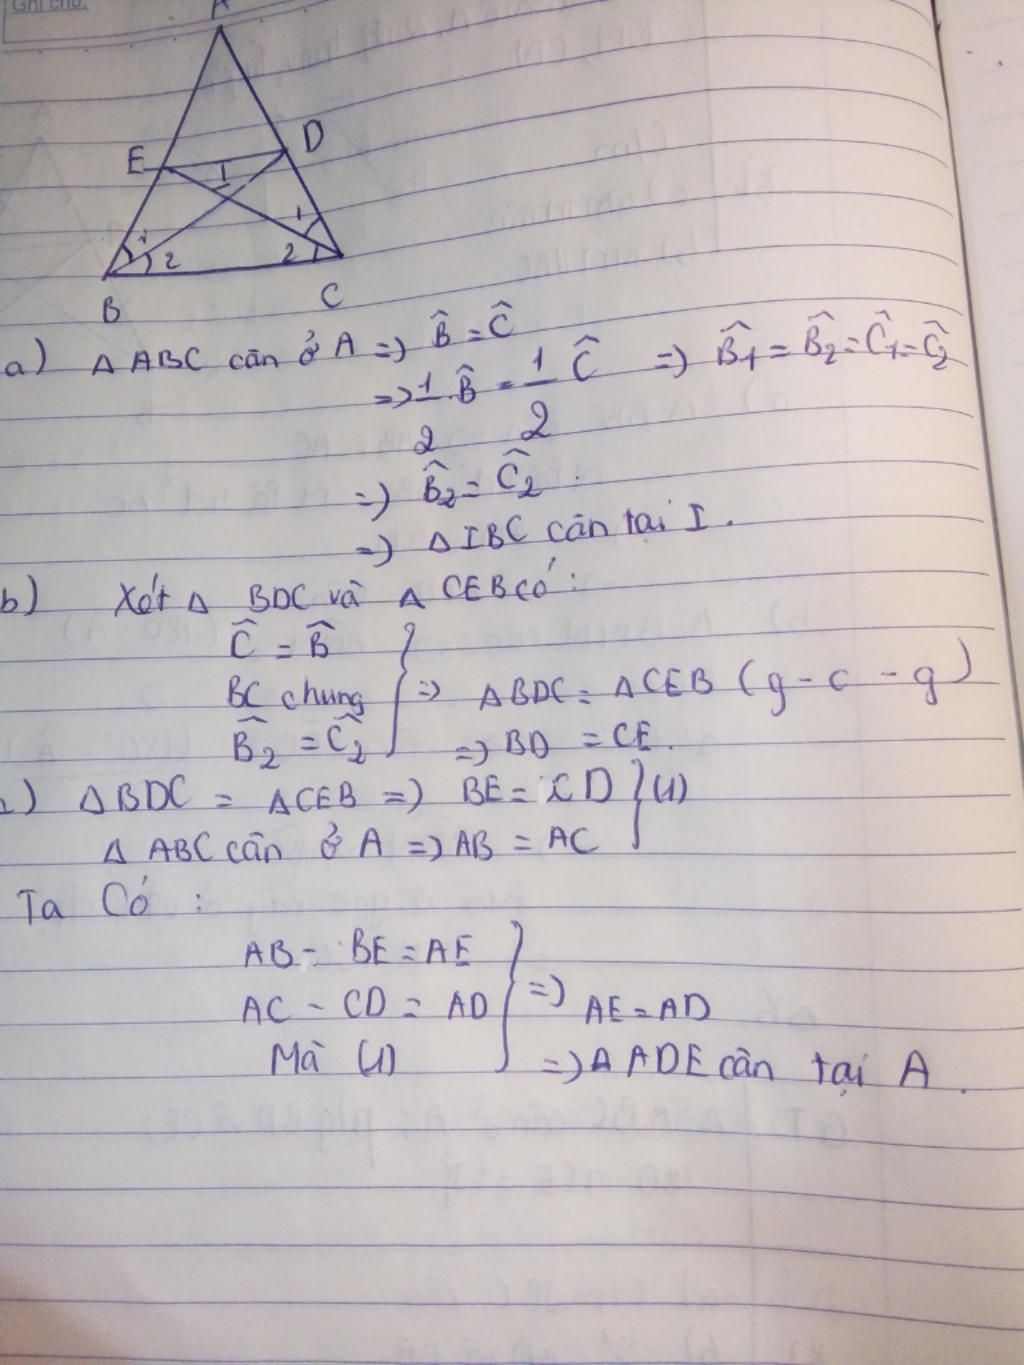 Ghi chú:
A
E
D
I
1
1
2
2
B
C
a) Δ ABC cân ở A => B̂ = Ĉ
=> 1/2 B̂ = 1/2 Ĉ => B̂1 = B̂2 = Ĉ1 = Ĉ2
=> B̂2 = Ĉ2.
=> Δ IBC cân tại I.
b) Xét Δ BDC và Δ CEB có:
Ĉ = B̂
BC chung
B̂2 = Ĉ2
=> Δ BDC = Δ CEB (g - c - g)
=> BD = CE.
c) Δ BDC = Δ CEB => BE = CD
Δ ABC cân ở A => AB = AC
(1)
Ta Có:
AB - BE = AE
AC - CD = AD
Mà (1)
=> AE = AD
=> Δ ADE cân tại A.